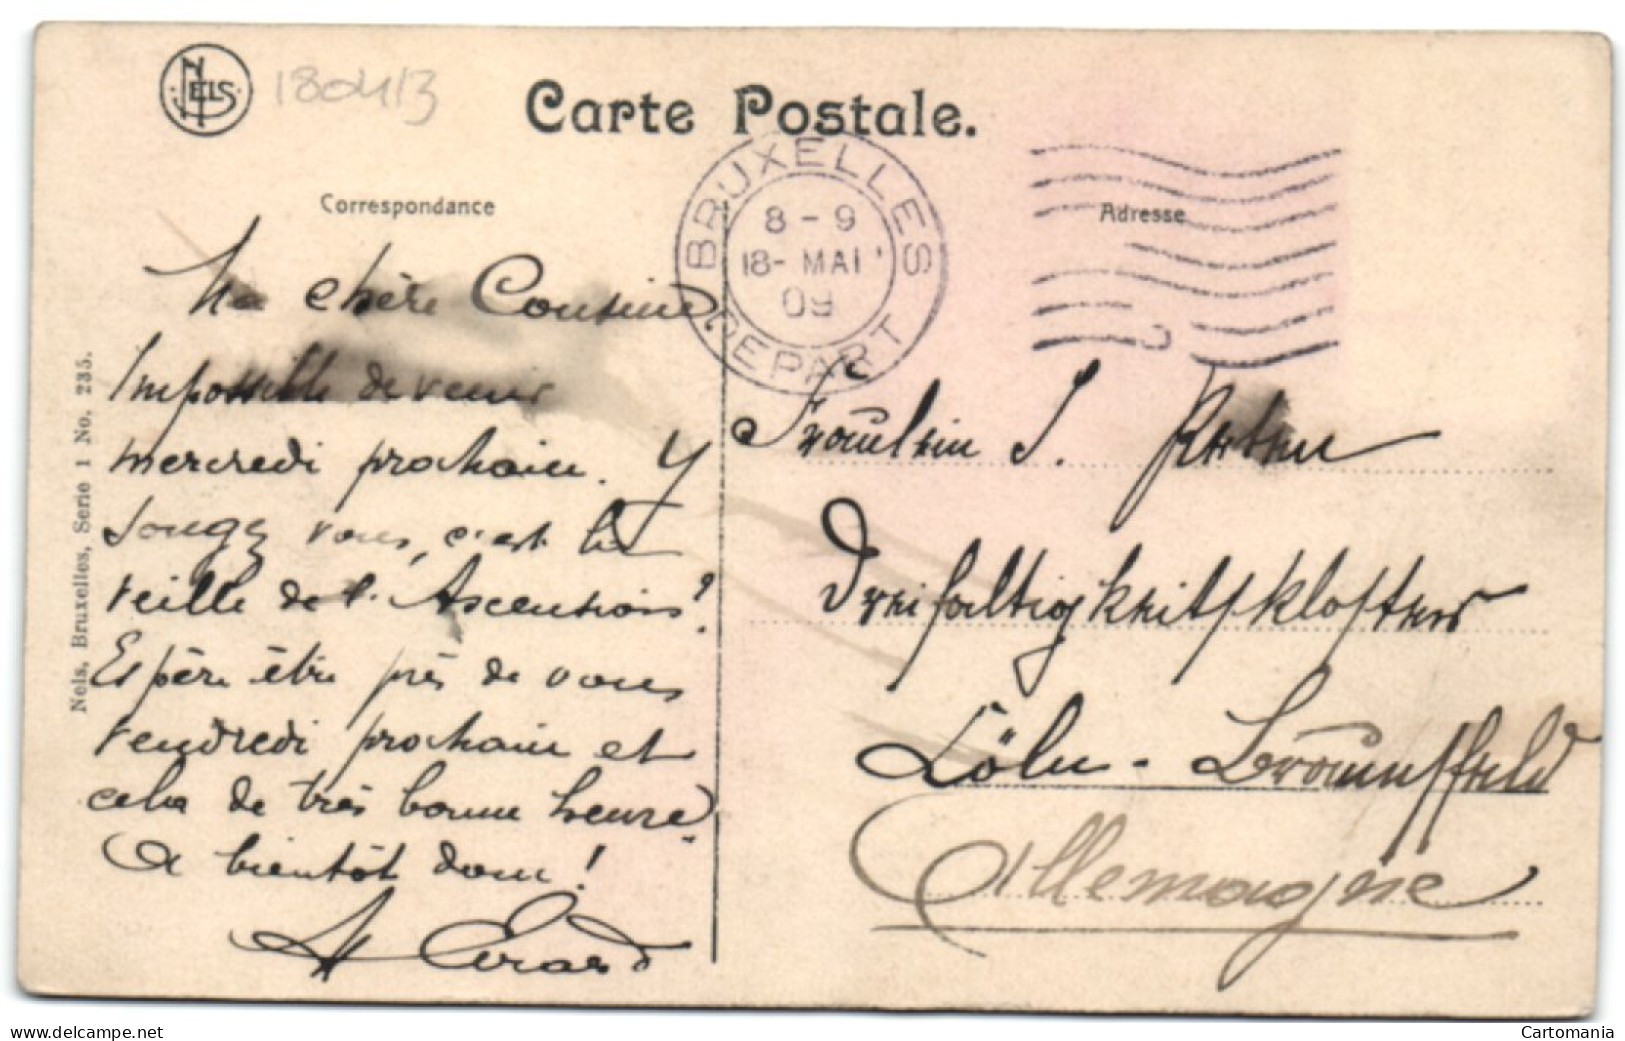 NELS
180413
Carte Postale.
BRUXELLES
8 - 9
18 - MAI
09
DEPART
Correspondance
Adresse
Ma chère Cousine
Impossible de venir
mercredi prochain. Y
songez vous, c'est la
veille de l'Ascension?
Espère être près de vous
vendredi prochain et
cela de très bonne heure.
A bientôt donc!
Fräulein J.
Dreifaltigkeitskloster
Cöln - Braunsfeld
Allemagne
Nels, Bruxelles, Serie 1 No. 235.
www.delcampe.net
Cartomania